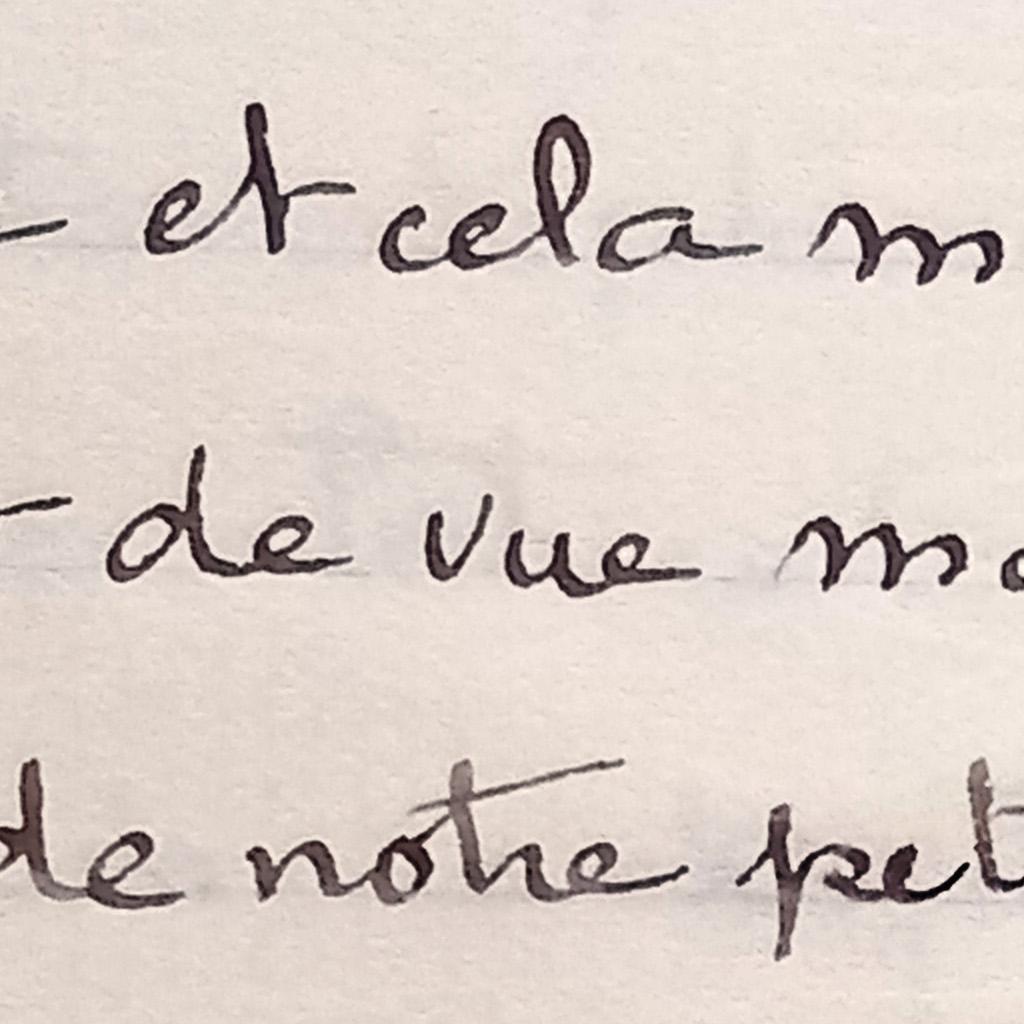 et cela m
de vue mo
de notre pet